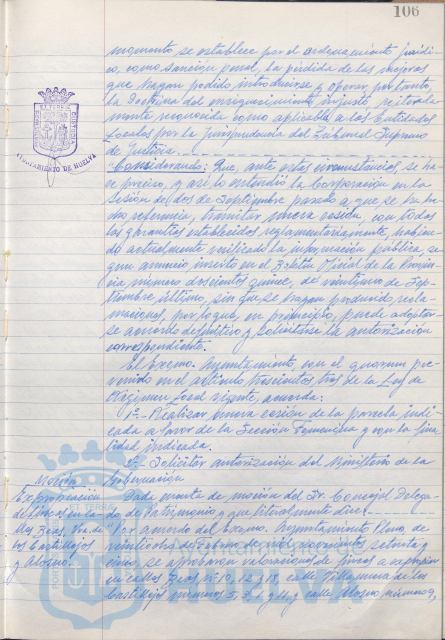 106
momento se establece por el ordenamiento jurídi-
co, como sanción penal, la pérdida de las mejoras
que hayan podido introducirse, y operar por tanto,
la Doctrina del enriquecimiento injusto, reiterada-
mente reconocida como aplicable a las Entidades
Locales por la Jurisprudencia del Tribunal Supremo
de Justicia.
Considerando: Que, ante estas circunstancias, se ha-
ce preciso, y así lo entendió la Corporación en la
Sesión del dos de Septiembre pasado a que se ha he-
cho referencia, tramitar nueva cesión, con todas
las garantías establecidas reglamentariamente, habien-
do actualmente verificado la información pública, se-
gún anuncio inserto en el Boletín Oficial de la Provin-
cia número doscientos quince, de veintiuno de Sep-
tiembre último, sin que se hayan producido recla-
maciones, por lo que, en principio, puede adoptar-
se acuerdo definitivo y solicitarse la autorización
correspondiente.
El Excmo. Ayuntamiento, con el quorum pre-
venido en el artículo trescientos tres de la Ley de
Régimen Local vigente, acuerda:
1º.- Realizar nueva cesión de la parcela indi-
cada a favor de la Sección Femenina y con la fina-
lidad indicada.
2º.- Solicitar autorización del Ministerio de la
Gobernación
Moción
Expropiación
Dada cuenta de moción del Sr. Concejal Delega-
do de Patrimonio y que literalmente dice:
"Por acuerdo del Excmo. Ayuntamiento Pleno de
los Castillejos
veintiocho de Febrero de mil novecientos setenta y
y Alosno.
cinco, se aprobaron valoraciones de fincas a expropiar
en calles Beas nº 10, 12 y 18, calle Villanueva de los
Castillejos números 5, 3, 1 y 14 y calle Alosno número 9,
AYUNTAMIENTO DE HUELVA
Ayuntamiento de
HUELVA